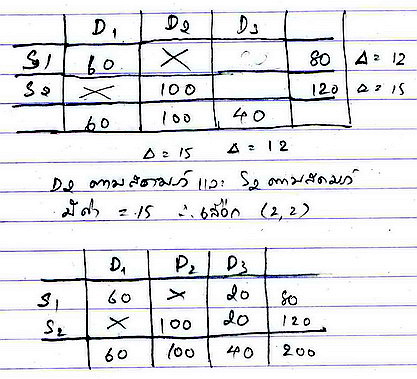 D1 D2 D3
S1 60 × 80 Δ = 12
S2 × 100 120 Δ = 15
60 100 40
Δ = 15 Δ = 12
D2 ตามสดมภ์ และ S2 ตามสดมภ์
มีค่า = 15 ∴ เลือก (2,2)
D1 D2 D3
S1 60 × 20 80
S2 × 100 20 120
60 100 40 200